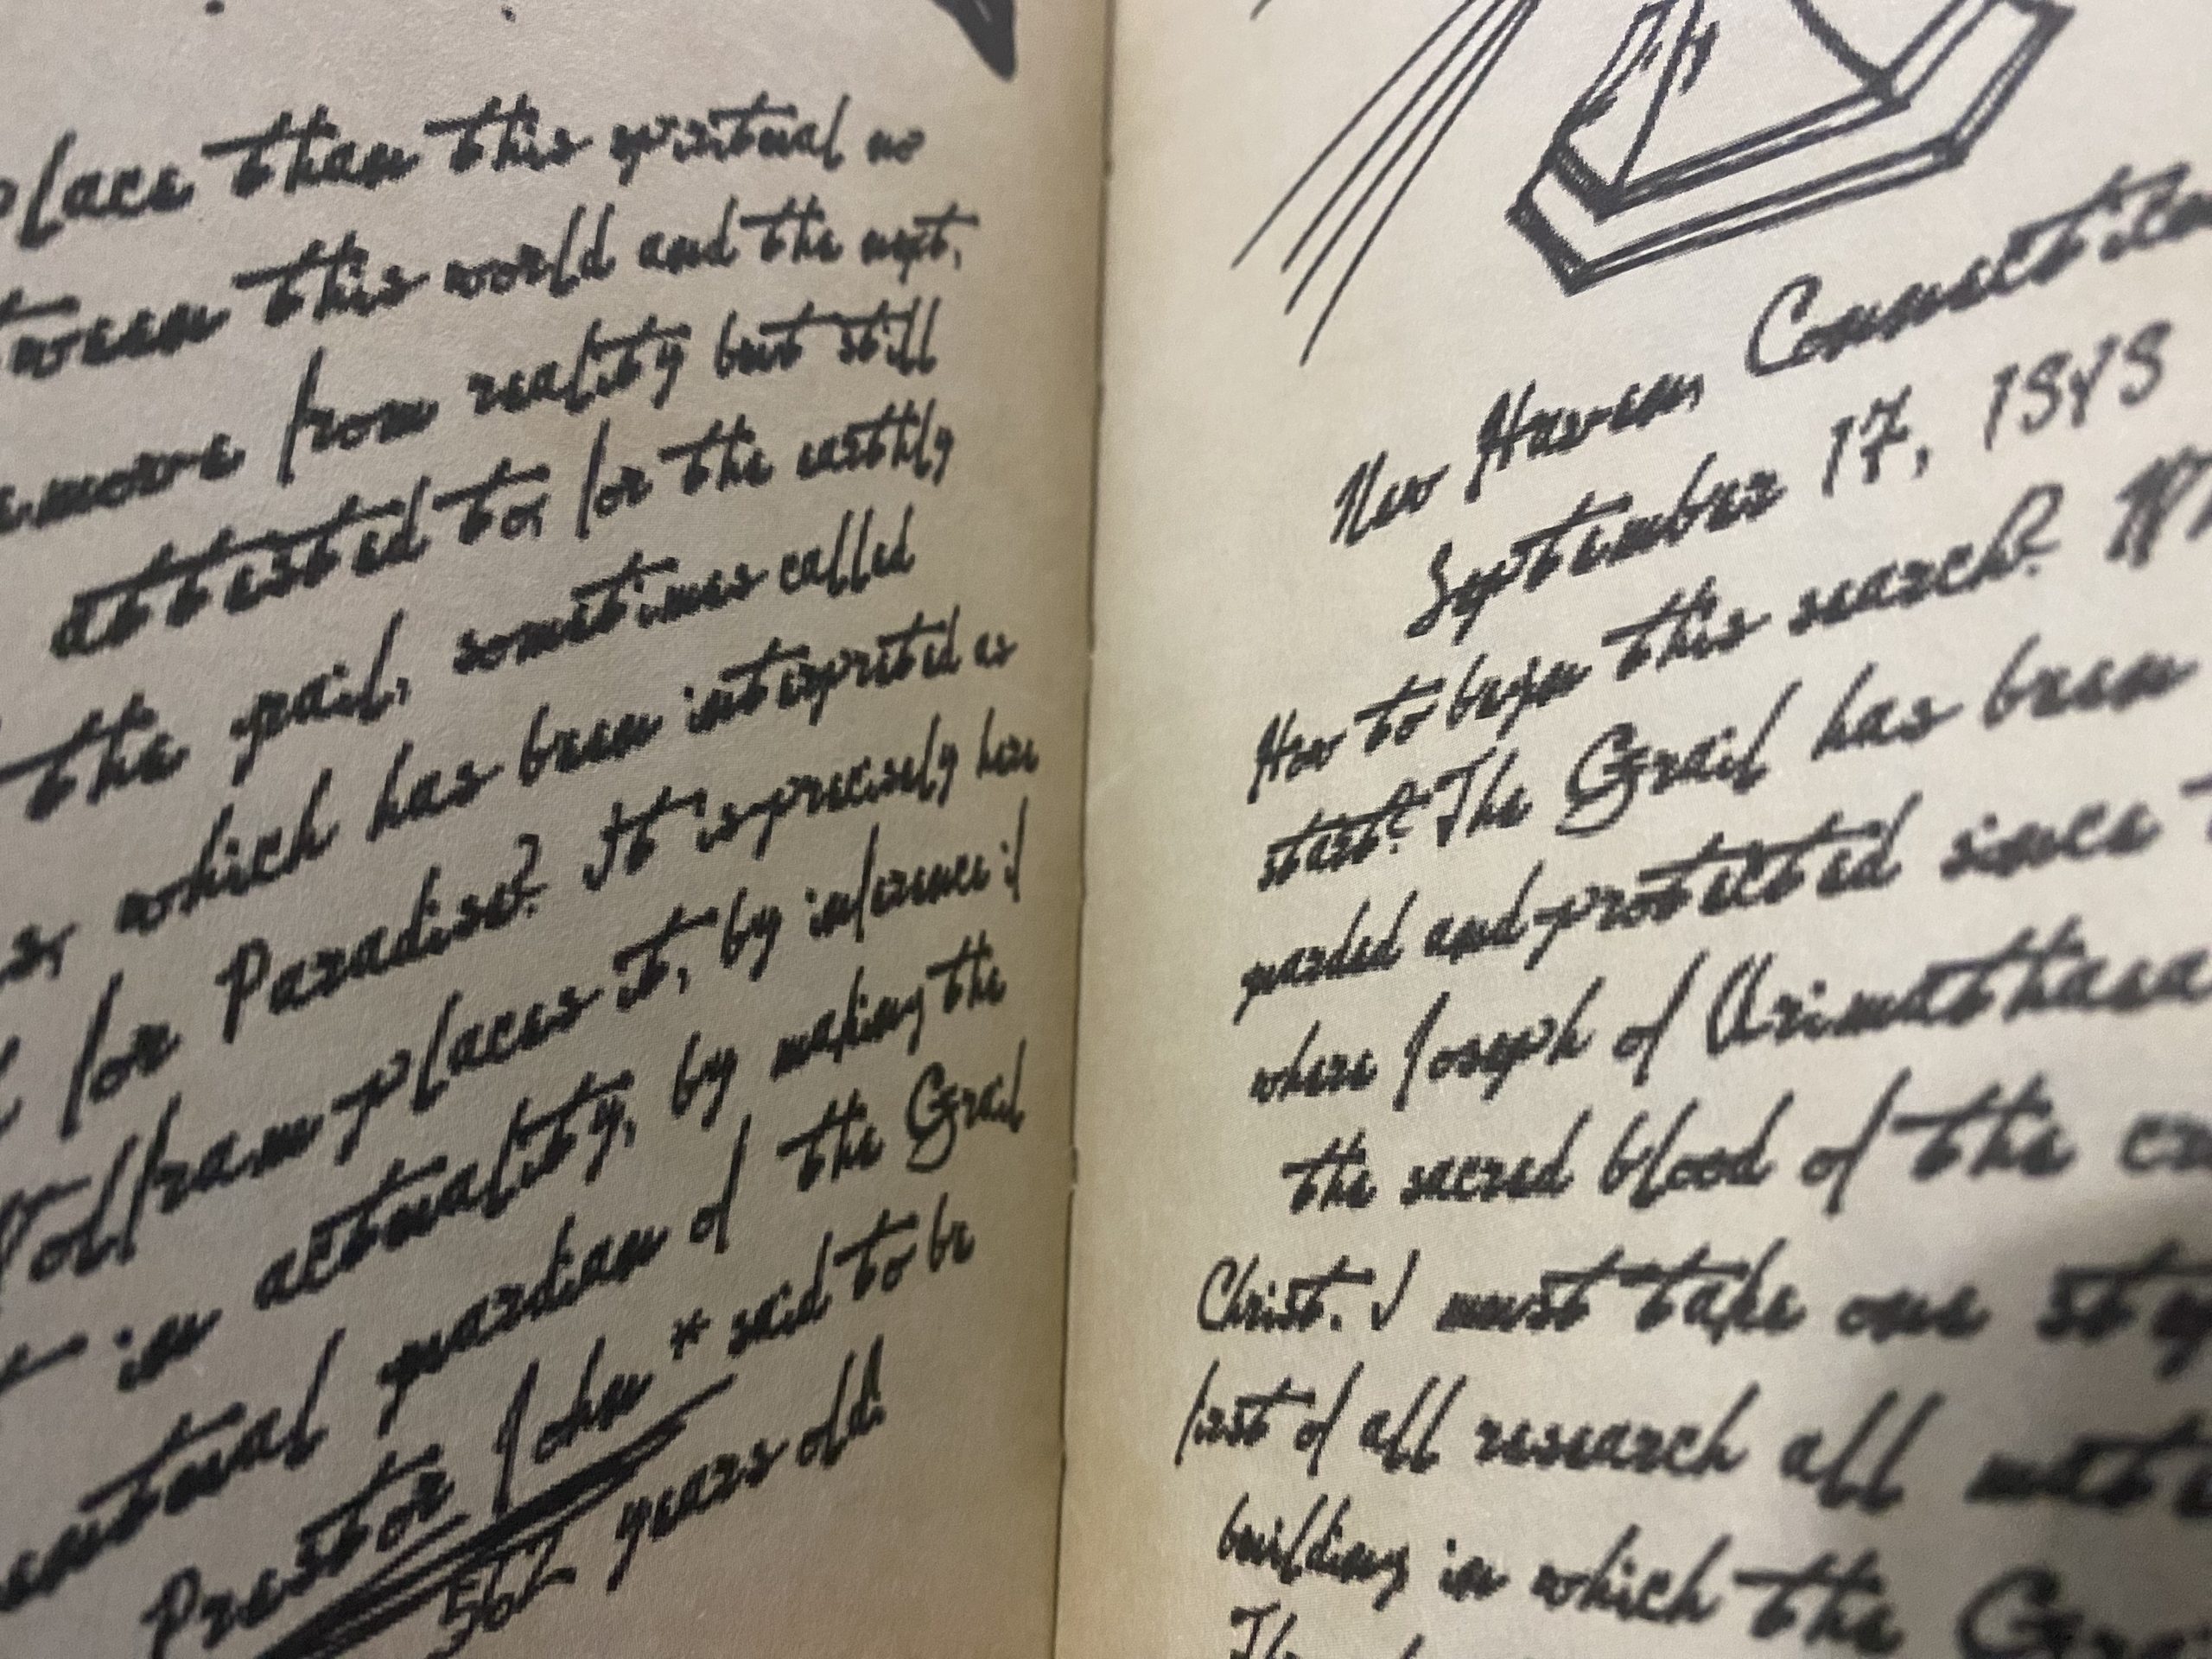 place than this spiritual no
tween this world and the next,
emove from reality but still
attested to, for the earthly
the grail, sometimes called
s, which has been interpreted as
for Paradise? It is precisely here
Wolfram places it, by inference if
in actuality, by making the
entual guardian of the Grail
Prestor John * said to be
562 years old!
New Haven, Connectic
September 17,
How to begin this search? Wh
start? The Grail has been
guarded and protected since t
where Joseph of Arimathaea
the sacred blood of the
Christ. I must take one step
first of all research all
building in which the